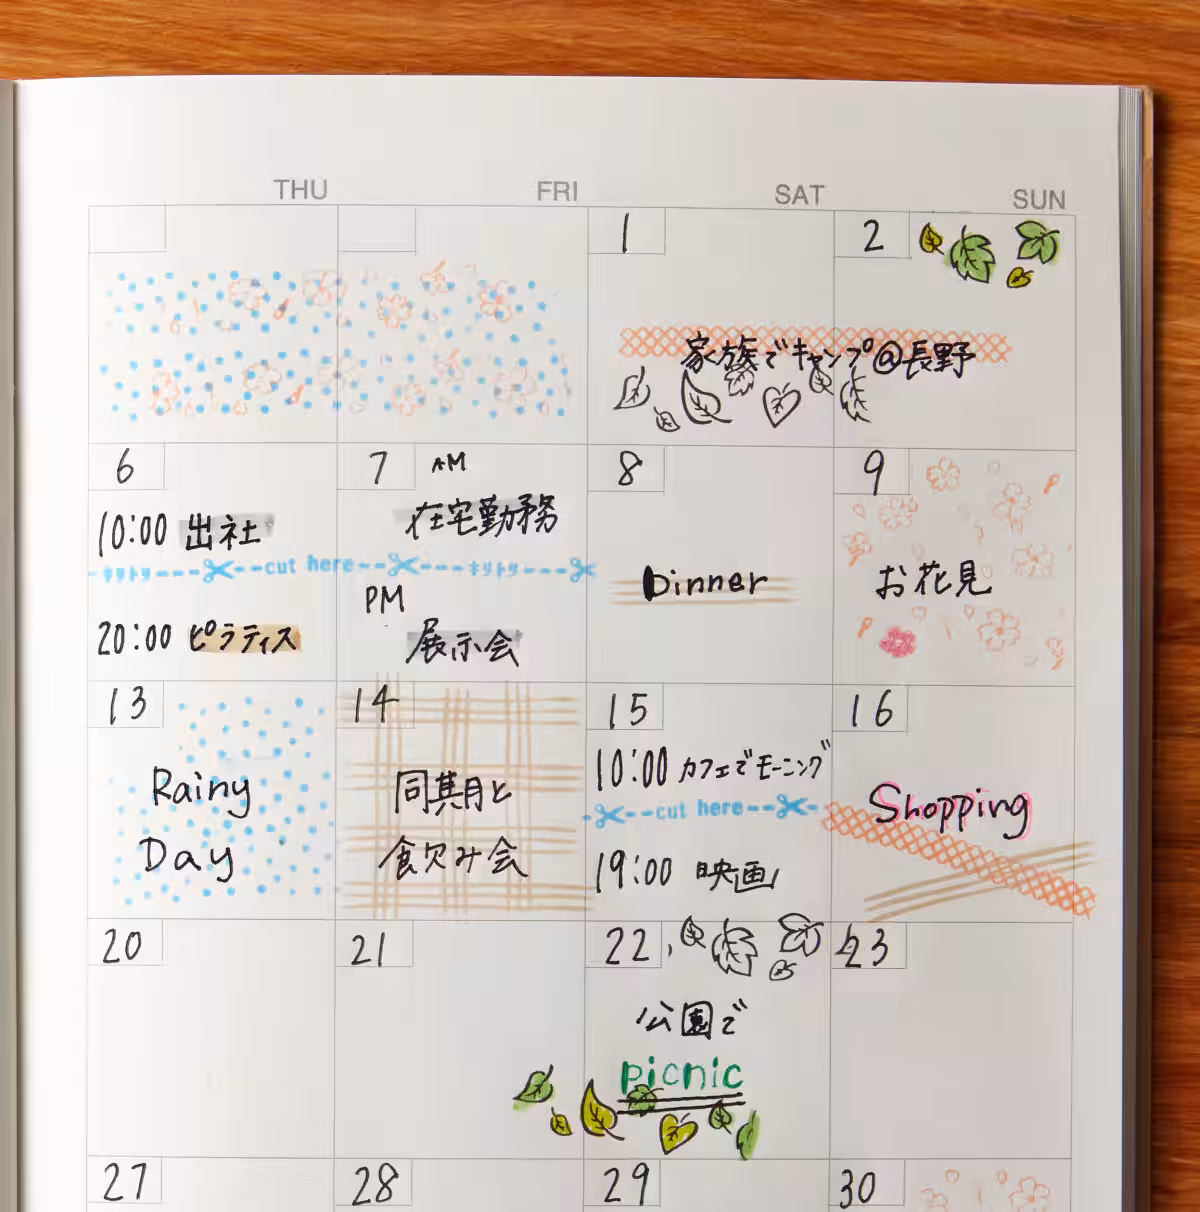 THU FRI SAT SUN
1
2
家族でキャンプ@長野
6
10:00 出社
キリトリ cut here キリトリ
20:00 ピラティス
7
AM
在宅勤務
PM
展示会
8
Dinner
9
お花見
13
Rainy
Day
14
同期と
飲み会
15
10:00 カフェでモーニング
cut here
19:00 映画
16
Shopping
20
21
22
公園で
picnic
23
27
28
29
30